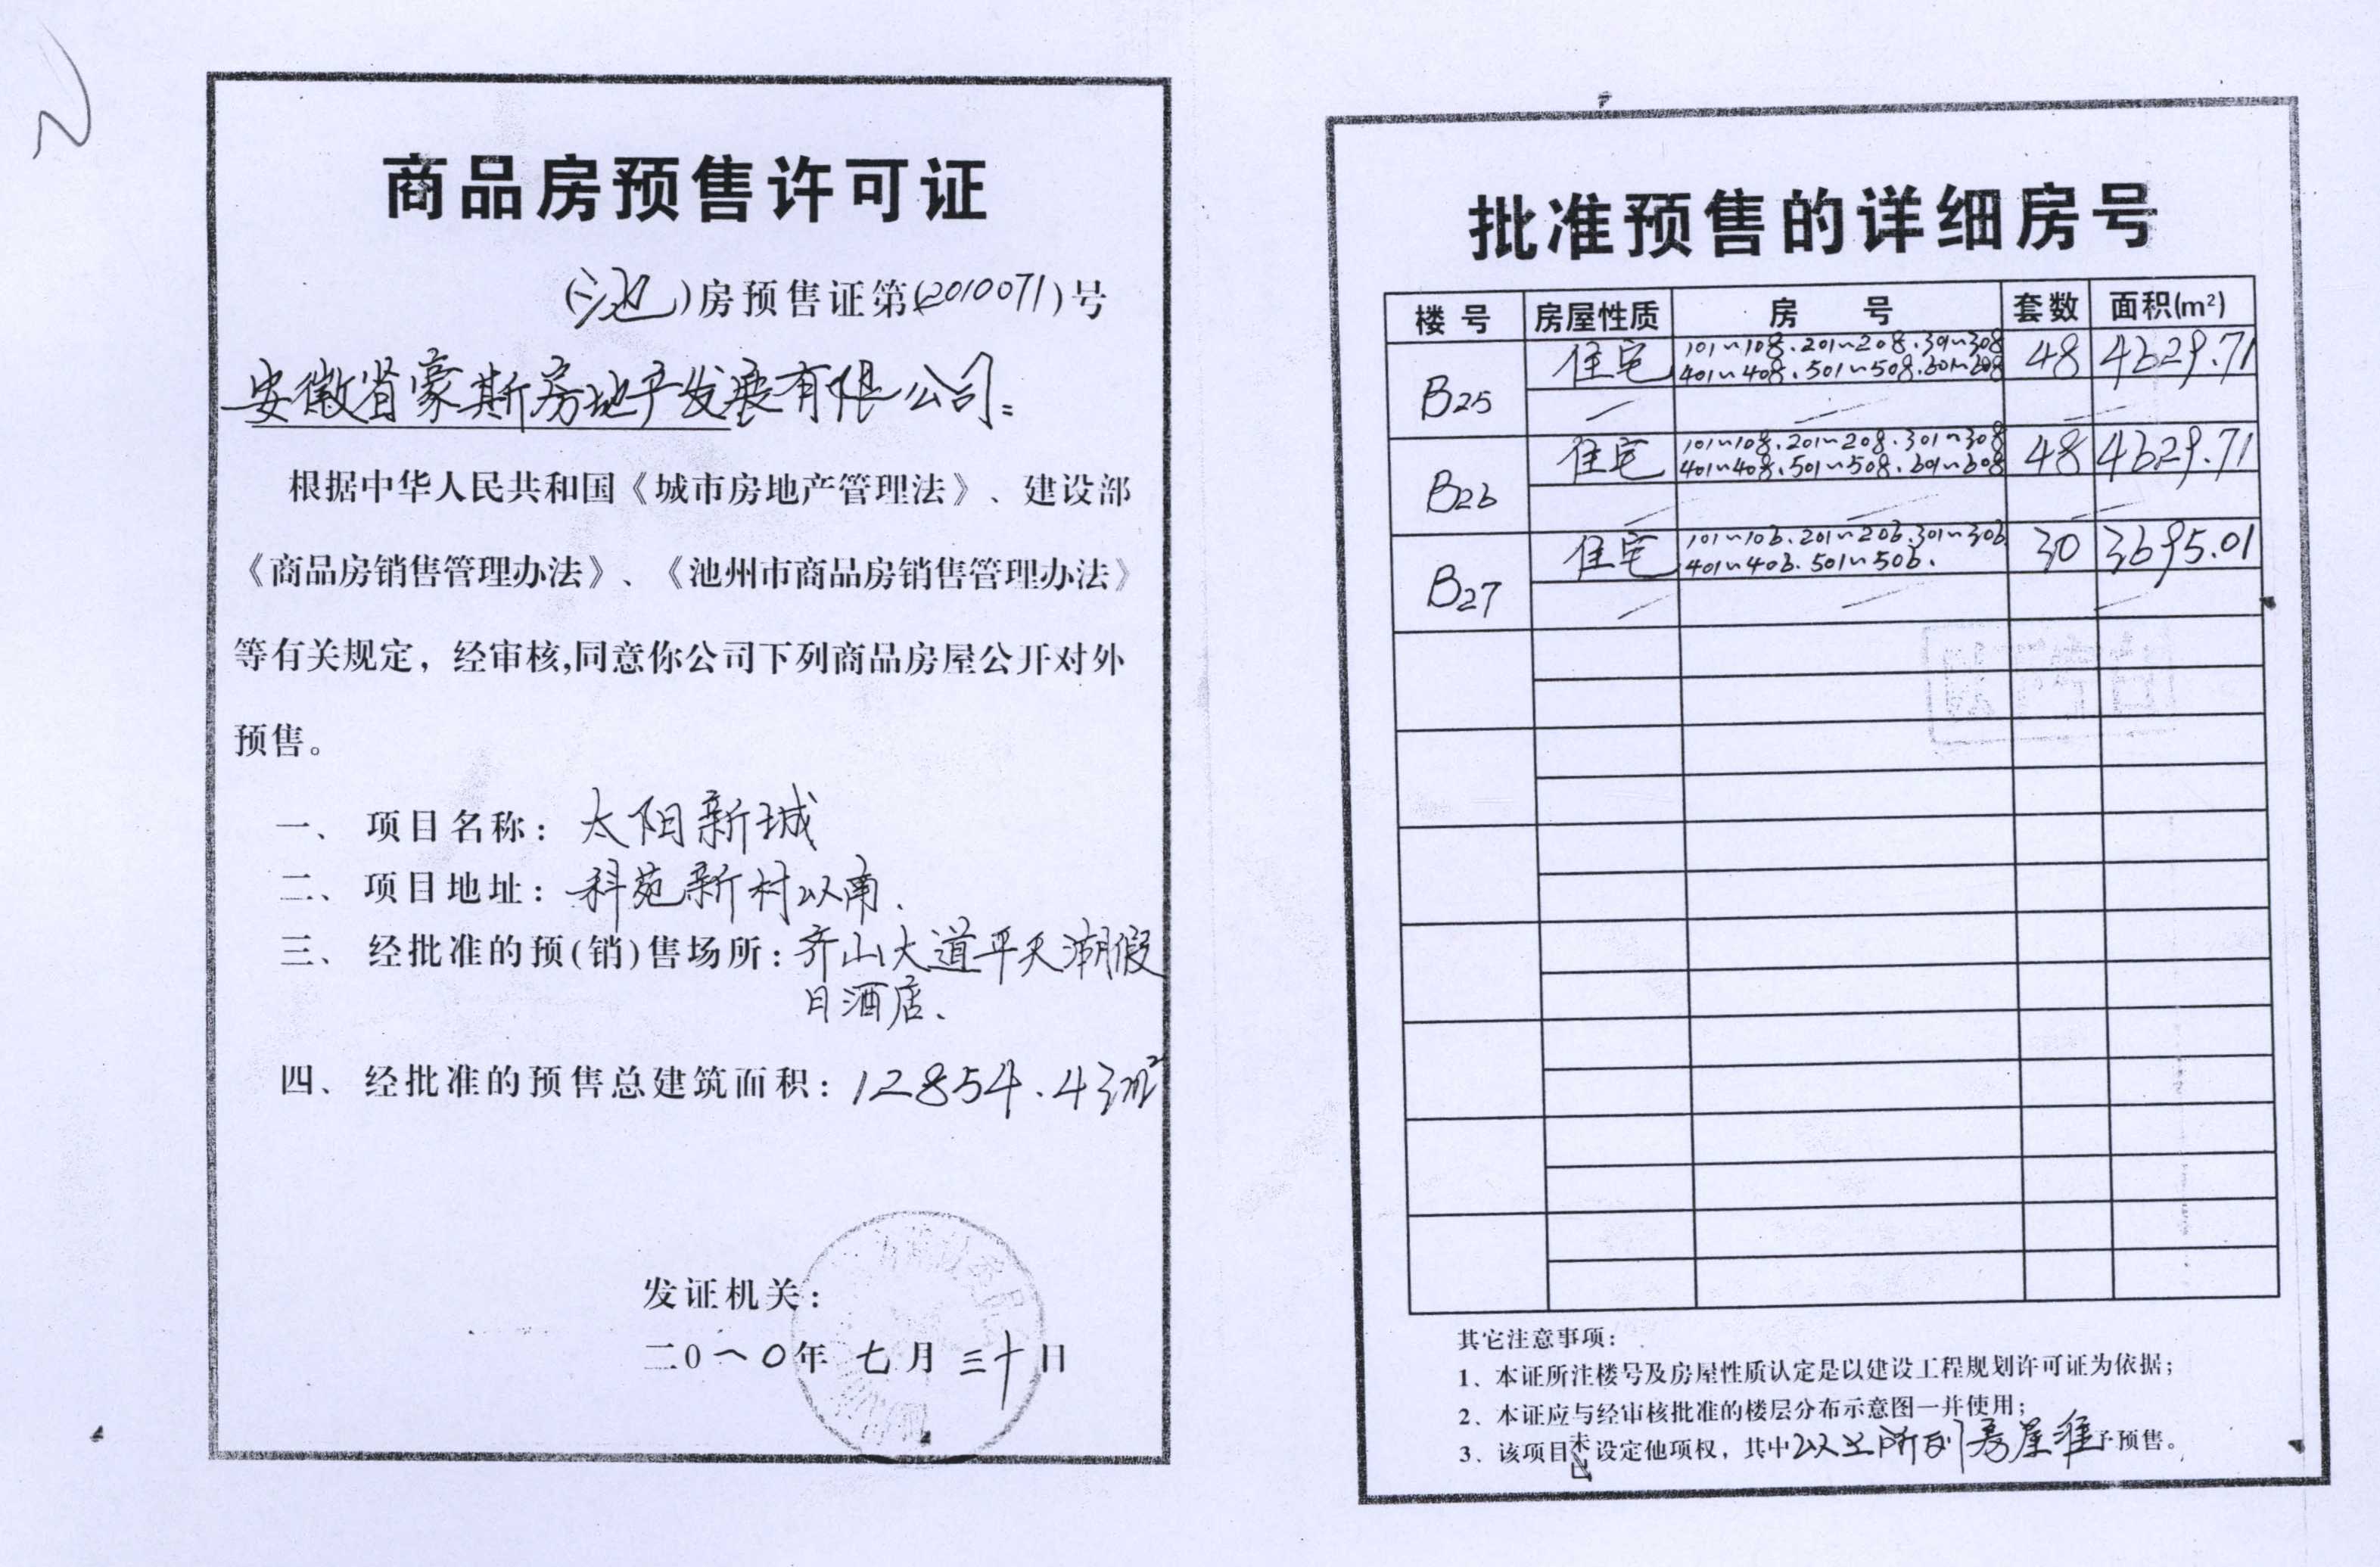 商品房预售许可证
(池)房预售证第(2010071)号
安徽省豪斯房地产发展有限公司:
根据中华人民共和国《城市房地产管理法》、建设部
《商品房销售管理办法》、《池州市商品房销售管理办法》
等有关规定，经审核,同意你公司下列商品房屋公开对外
预售。
一、 项目名称: 太阳新城
二、 项目地址: 科苑新村以南.
三、 经批准的预(销)售场所: 齐山大道平天湖假
日酒店、
四、 经批准的预售总建筑面积: 12854.43m²
发证机关:
二0一0年 七月三十日
批准预售的详细房号
楼号 房屋性质 房号 套数 面积(m²)
B25 住宅 101~108.201~208.301~308 48 4629.71
401~408.501~508.601~608
B26 住宅 101~108.201~208.301~308 48 4629.71
401~408.501~508.601~608
B27 住宅 101~106.201~206.301~306 30 3695.01
401~406.501~506.
其它注意事项:
1、本证所注楼号及房屋性质认定是以建设工程规划许可证为依据;
2、本证应与经审核批准的楼层分布示意图一并使用;
3、该项目未设定他项权，其中以上所列房屋准予预售。